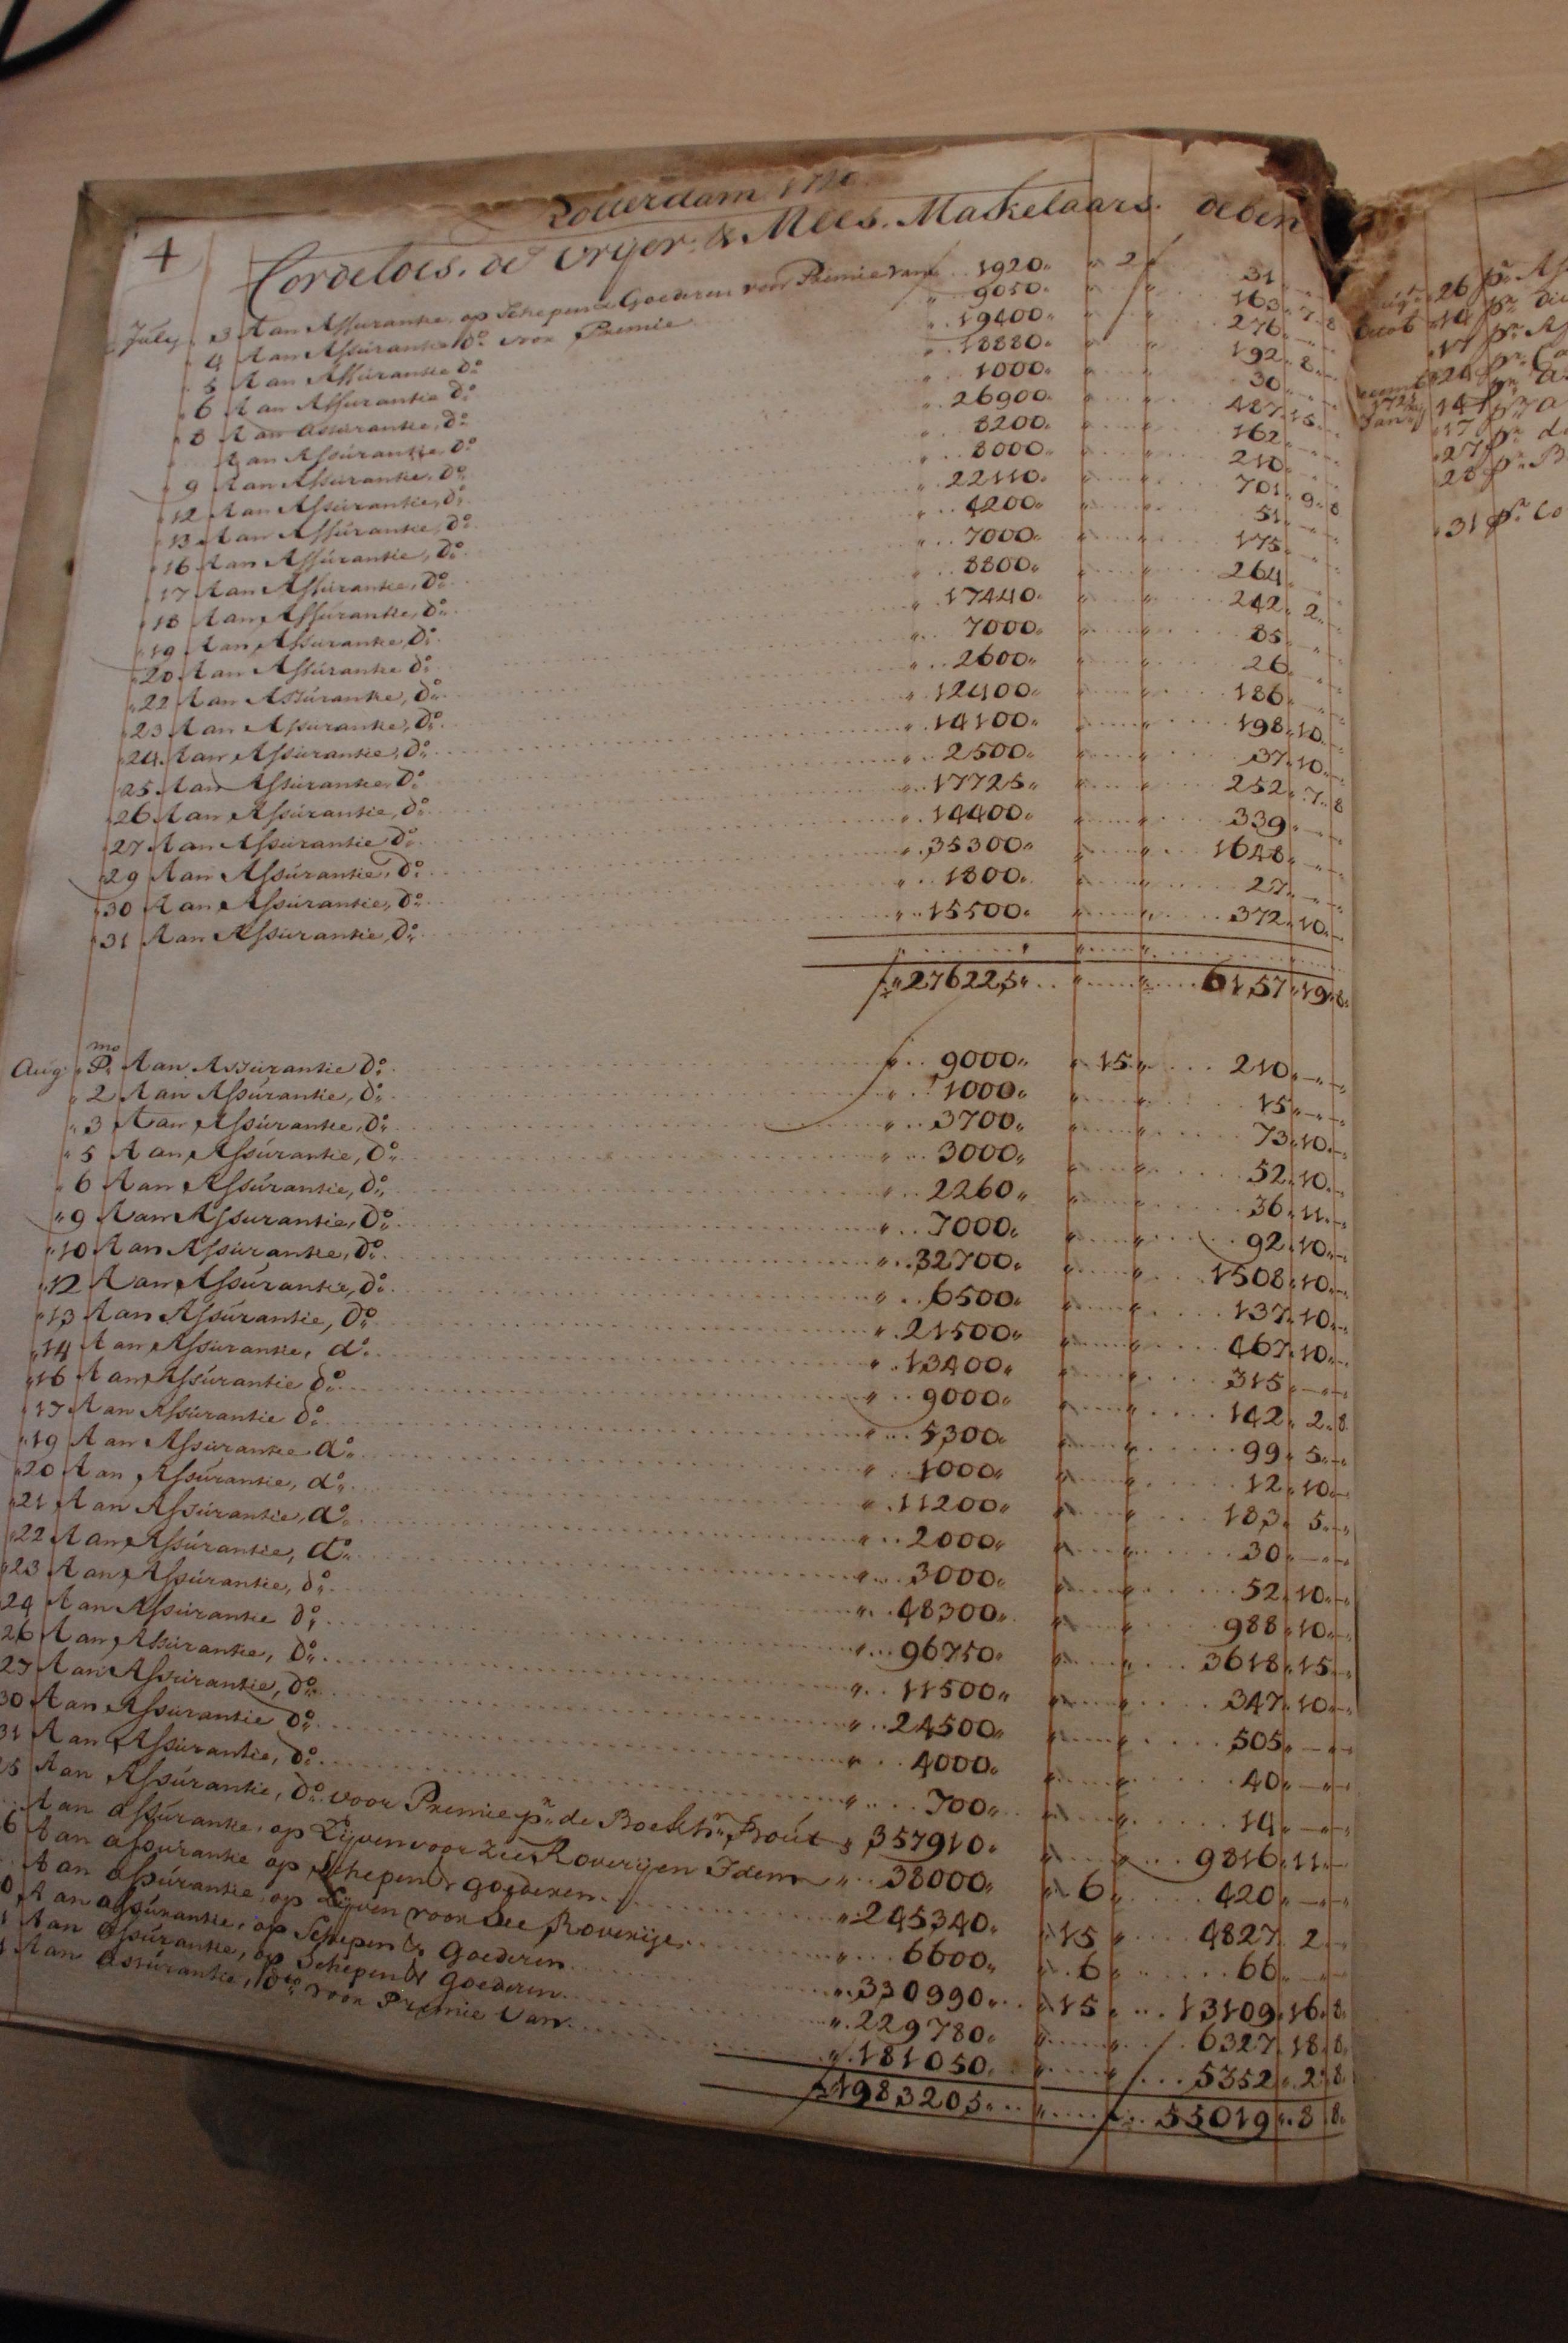 Rotterdam 17
4 Cordelois. de Vryer. & Mees. Makelaars. deben
July 3 Aan Assurantie, op Schepen & Goederen voor Premie van 1920 " 2 " 31
4 Aan Assurantie do voor Premie 9050 163 7 8
5 Aan Assurantie do 19400 276
6 Aan Assurantie do 13880 192 8
8 Aan Assurantie, do 1000 30
Aan Assurantie, do 26900 487 15
9 Aan Assurantie, do 8200 162
12 Aan Assurantie, do 8000 210
13 Aan Assurantie, do 22110 701 9 8
16 Aan Assurantie, do 4200 51
17 Aan Assurantie, do 7000 175
18 Aan Assurantie, do 8800 264
19 Aan Assurantie, do 17440 242 2
20 Aan Assurantie do 7000 85
22 Aan Assurantie, do 2600 26
23 Aan Assurantie, do 12400 186
24 Aan Assurantie, do 14100 198 10
25 Aan Assurantie, do 2500 37 10
26 Aan Assurantie, do 17725 252 7 8
27 Aan Assurantie do 14400 339
29 Aan Assurantie, do 35300 1648
30 Aan Assurantie, do 1800 27
31 Aan Assurantie, do 15500 372 10
276225 6157 19 8
Aug Pmo Aan Assurantie do 9000 15 210
2 Aan Assurantie, do 1000 15
3 Aan Assurantie, do 3700 73 10
5 Aan Assurantie, do 3000 52 10
6 Aan Assurantie, do 2260 36 11
9 Aan Assurantie, do 7000 92 10
10 Aan Assurantie, do 32700 1508 10
12 Aan Assurantie, do 6500 137 10
13 Aan Assurantie, do 21500 467 10
14 Aan Assurantie, do 13400 315
16 Aan Assurantie do 9000 142 2 8
17 Aan Assurantie do 5300 99 5
19 Aan Assurantie do 1000 12 10
20 Aan Assurantie, do 11200 183 5
21 Aan Assurantie, do 2000 30
22 Aan Assurantie, do 3000 52 10
23 Aan Assurantie, do 48300 988 10
24 Aan Assurantie do 96750 3618 15
26 Aan Assurantie, do 11500 347 10
27 Aan Assurantie, do 24500 505
30 Aan Assurantie do 4000 40
31 Aan Assurantie, do 700 14
5 Aan Assurantie, do voor Premie pr de Boekhr Prout 357910 9816 11
Aan assurantie, op Lyven voor Zee Roveryen Idem 38000 6 420
6 Aan assurantie op Schepen & goederen 245340 15 4827 2
Aan assurantie, op Lyven voor Zee Roverije 6600 6 66
Aan assurantie, op Schepen & Goederen 330990 15 13109 16 8
Aan assurantie, op Schepen & Goederen 229780 6327 18 8
Aan assurantie, do voor Premie van 181050 5352 2 8
1983205 55019 8 8
26 pr As
14 pr
17 pr As
24 pr Ca
Jan 14 pr
17 pr d
27 pr
28 pr B
31 pr Co